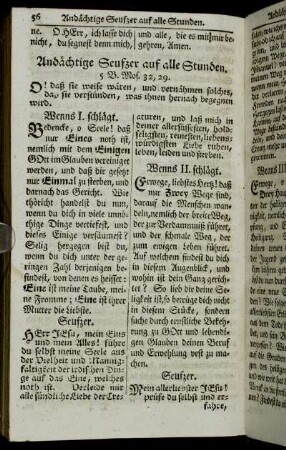 56 Andächtige Seufzer auf alle Stunden.
ne. O HErr, ich lasse dich
nicht, du segnest denn mich,
und alle, die es mit mir be-
gehren, Amen.
Andächtige Seufzer auf alle Stunden.
5. B. Mos. 32, 29.
O! daß sie weise wären, und vernähmen solches,
daß sie verstünden, was ihnen hernach begegnen
wird.
Wenns I. schlägt.
Bedencke, o Seele! daß
nur Eines noth ist,
nemlich mit dem Einigen
GOtt im Glauben vereiniget
werden, und daß dir gesetzt
nur Einmal zu sterben, und
darnach das Gericht. Wie
thöricht handelst du nun,
wenn du dich in viele unnö-
thige Dinge vertiefest, und
dieses Einige versäumest?
Selig hergegen bist du,
wenn du dich unter der ge-
ringen Zahl derjenigen be-
findest, von denen es heisset:
Eine ist meine Taube, mei-
ne Fromme; Eine ist ihrer
Mutter die Liebste.
Seufzer.
HErr JEsu, mein Eins
und mein Alles! führe
du selbst meine Seele aus
der Vielheit und Mannig-
faltigkeit der irdischen Din-
ge auf das Eine, welches
noth ist. Verleide mir
alle sündliche Liebe der Cre-
aturen, und laß mich in
deiner allersüssesten, hold-
seligsten, reinesten, liebens-
würdigsten Liebe ruhen,
leben, leiden und sterben.
Wenns II. schlägt.
Erwege, liebstes Hertz! daß
nur Zwey Wege sind,
darauf die Menschen wan-
deln, nemlich der breite Weg,
der zur Verdammniß führet,
und der schmale Weg, der
zum ewigen Leben führet.
Auf welchem findest du dich
in diesem Augenblick, und
wohin ist dein Gesicht gerich-
tet? So lieb dir deine Se-
ligkeit ist, so betrüge dich nicht
in diesem Stücke, sondern
suche durch wirckliche Bekeh-
rung zu GOtt und lebendi-
gen Glauben deinen Beruf
und Erwehlung vest zu ma-
chen.
Seufzer.
Mein allerliebster JEsu!
prüfe du selbst und er-
fahre,